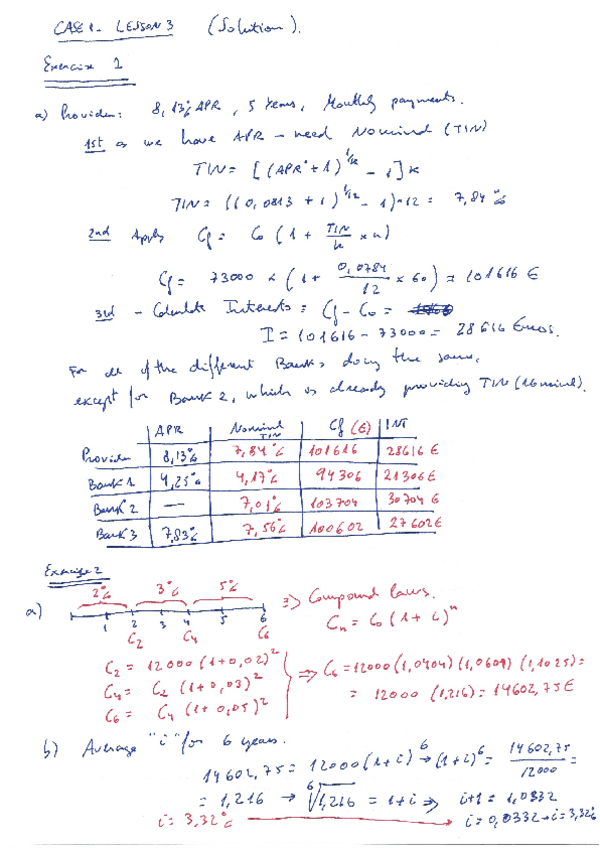 CASE 1 - LESSON 3 (Solution).
Exercise 1
a) Provider: 8,13% APR, 5 Years, Monthly payments.
1st as we have APR - need Nominal (TIN)
TIN = [(APR + 1)^1/k - 1] k
TIN = ((0,0813 + 1)^1/12 - 1)·12 = 7,84%
2nd Apply Cf = C0 (1 + TIN/k × n)
Cf = 73000 × (1 + 0,0784/12 × 60) = 101616 €
3rd - Calculate Interests = Cf - C0 =
I = 101616 - 73000 = 28616 Euros.
For all of the different Banks doing the same,
except for Bank 2, which is already providing TIN (Nominal).
APR Nominal TIN Cf (€) INT
Provider 8,13% 7,84% 101616 28616 €
Bank 1 4,25% 4,17% 94306 21306 €
Bank 2 — 7,01% 103704 30704 €
Bank 3 7,83% 7,56% 100602 27602 €
Exercise 2
2% 3% 5%
a) 1 2 3 4 5 6 => Compound laws.
C2 C4 C6 Cn = C0 (1 + i)^n
C2 = 12000 (1+0,02)^2
C4 = C2 (1+0,03)^2 => C6 = 12000 (1,0404) (1,0609) (1,1025) =
C6 = C4 (1+0,05)^2 = 12000 (1,216) = 14602,75 €
b) Average "i" for 6 years.
14602,75 = 12000 (1+i)^6 → (1+i)^6 = 14602,75/12000 =
= 1,216 → ⁶√1,216 = 1+i => i+1 = 1,0332
i = 3,32% → i = 0,0332 → i = 3,32%